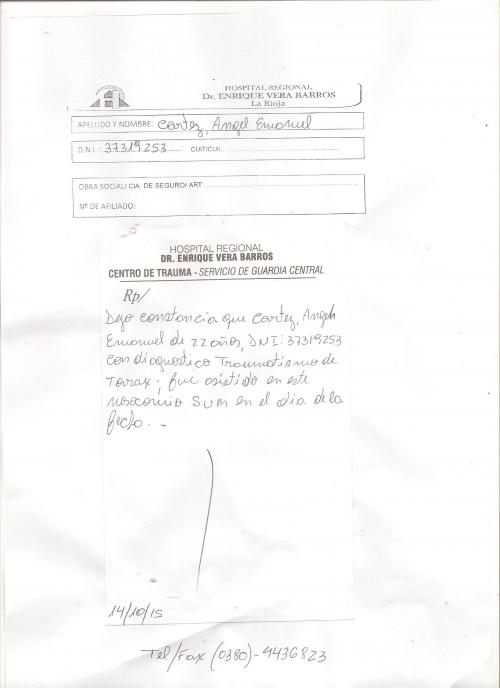 HOSPITAL REGIONAL
Dr. ENRIQUE VERA BARROS
La Rioja
APELLIDO Y NOMBRE: Cortez, Angel Emanuel
D.N.I.: 37319253 CUIT/CUIL:
OBRA SOCIAL/ CIA. DE SEGURO/ ART:
Nº DE AFILIADO:
HOSPITAL REGIONAL
DR. ENRIQUE VERA BARROS
CENTRO DE TRAUMA - SERVICIO DE GUARDIA CENTRAL
Rp/
Dejo constancia que Cortez, Angel
Emanuel de 22 años, DNI: 37319253
con diagnostico Traumatismo de
Torax; fue asistido en este
nosocomio SUM en el dia de la
fecha. -
14/10/15
Tel/Fax (0380)-4436823